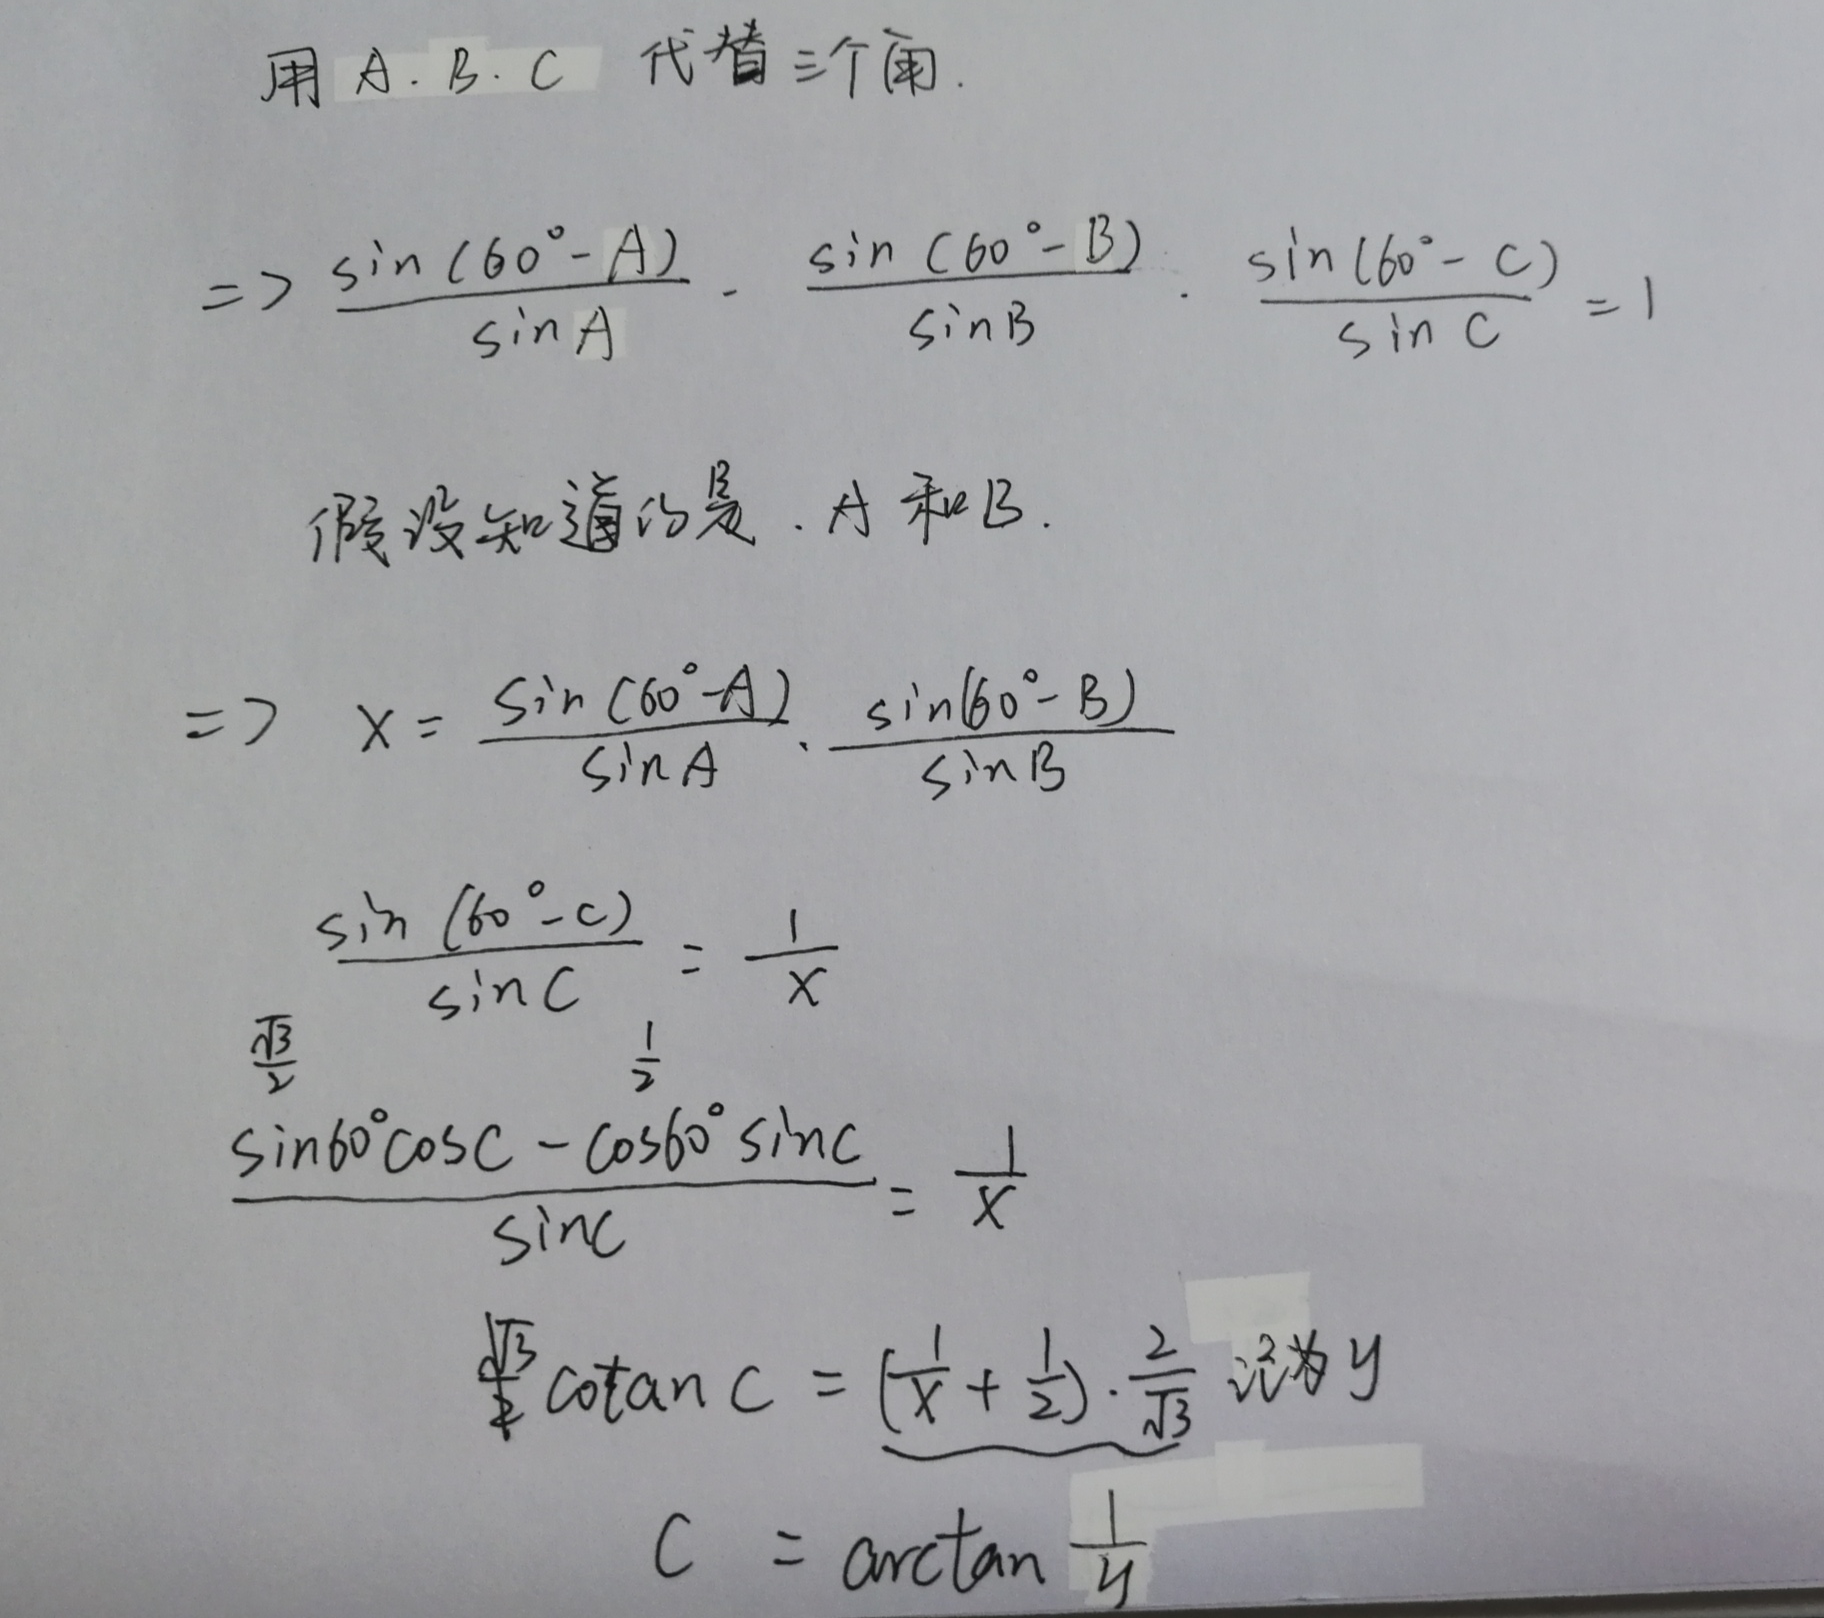 用 A. B. C 代替三个角.
=> sin(60°-A)/sinA · sin(60°-B)/sinB · sin(60°-C)/sinC = 1
假设知道的是. A和B.
=> x = sin(60°-A)/sinA · sin(60°-B)/sinB
sin(60°-C)/sinC = 1/x
√3/2 1/2
(sin60°cosC - cos60°sinC)/sinC = 1/x
cotanC = (1/x + 1/2)·2/√3 记为y
C = arctan 1/y